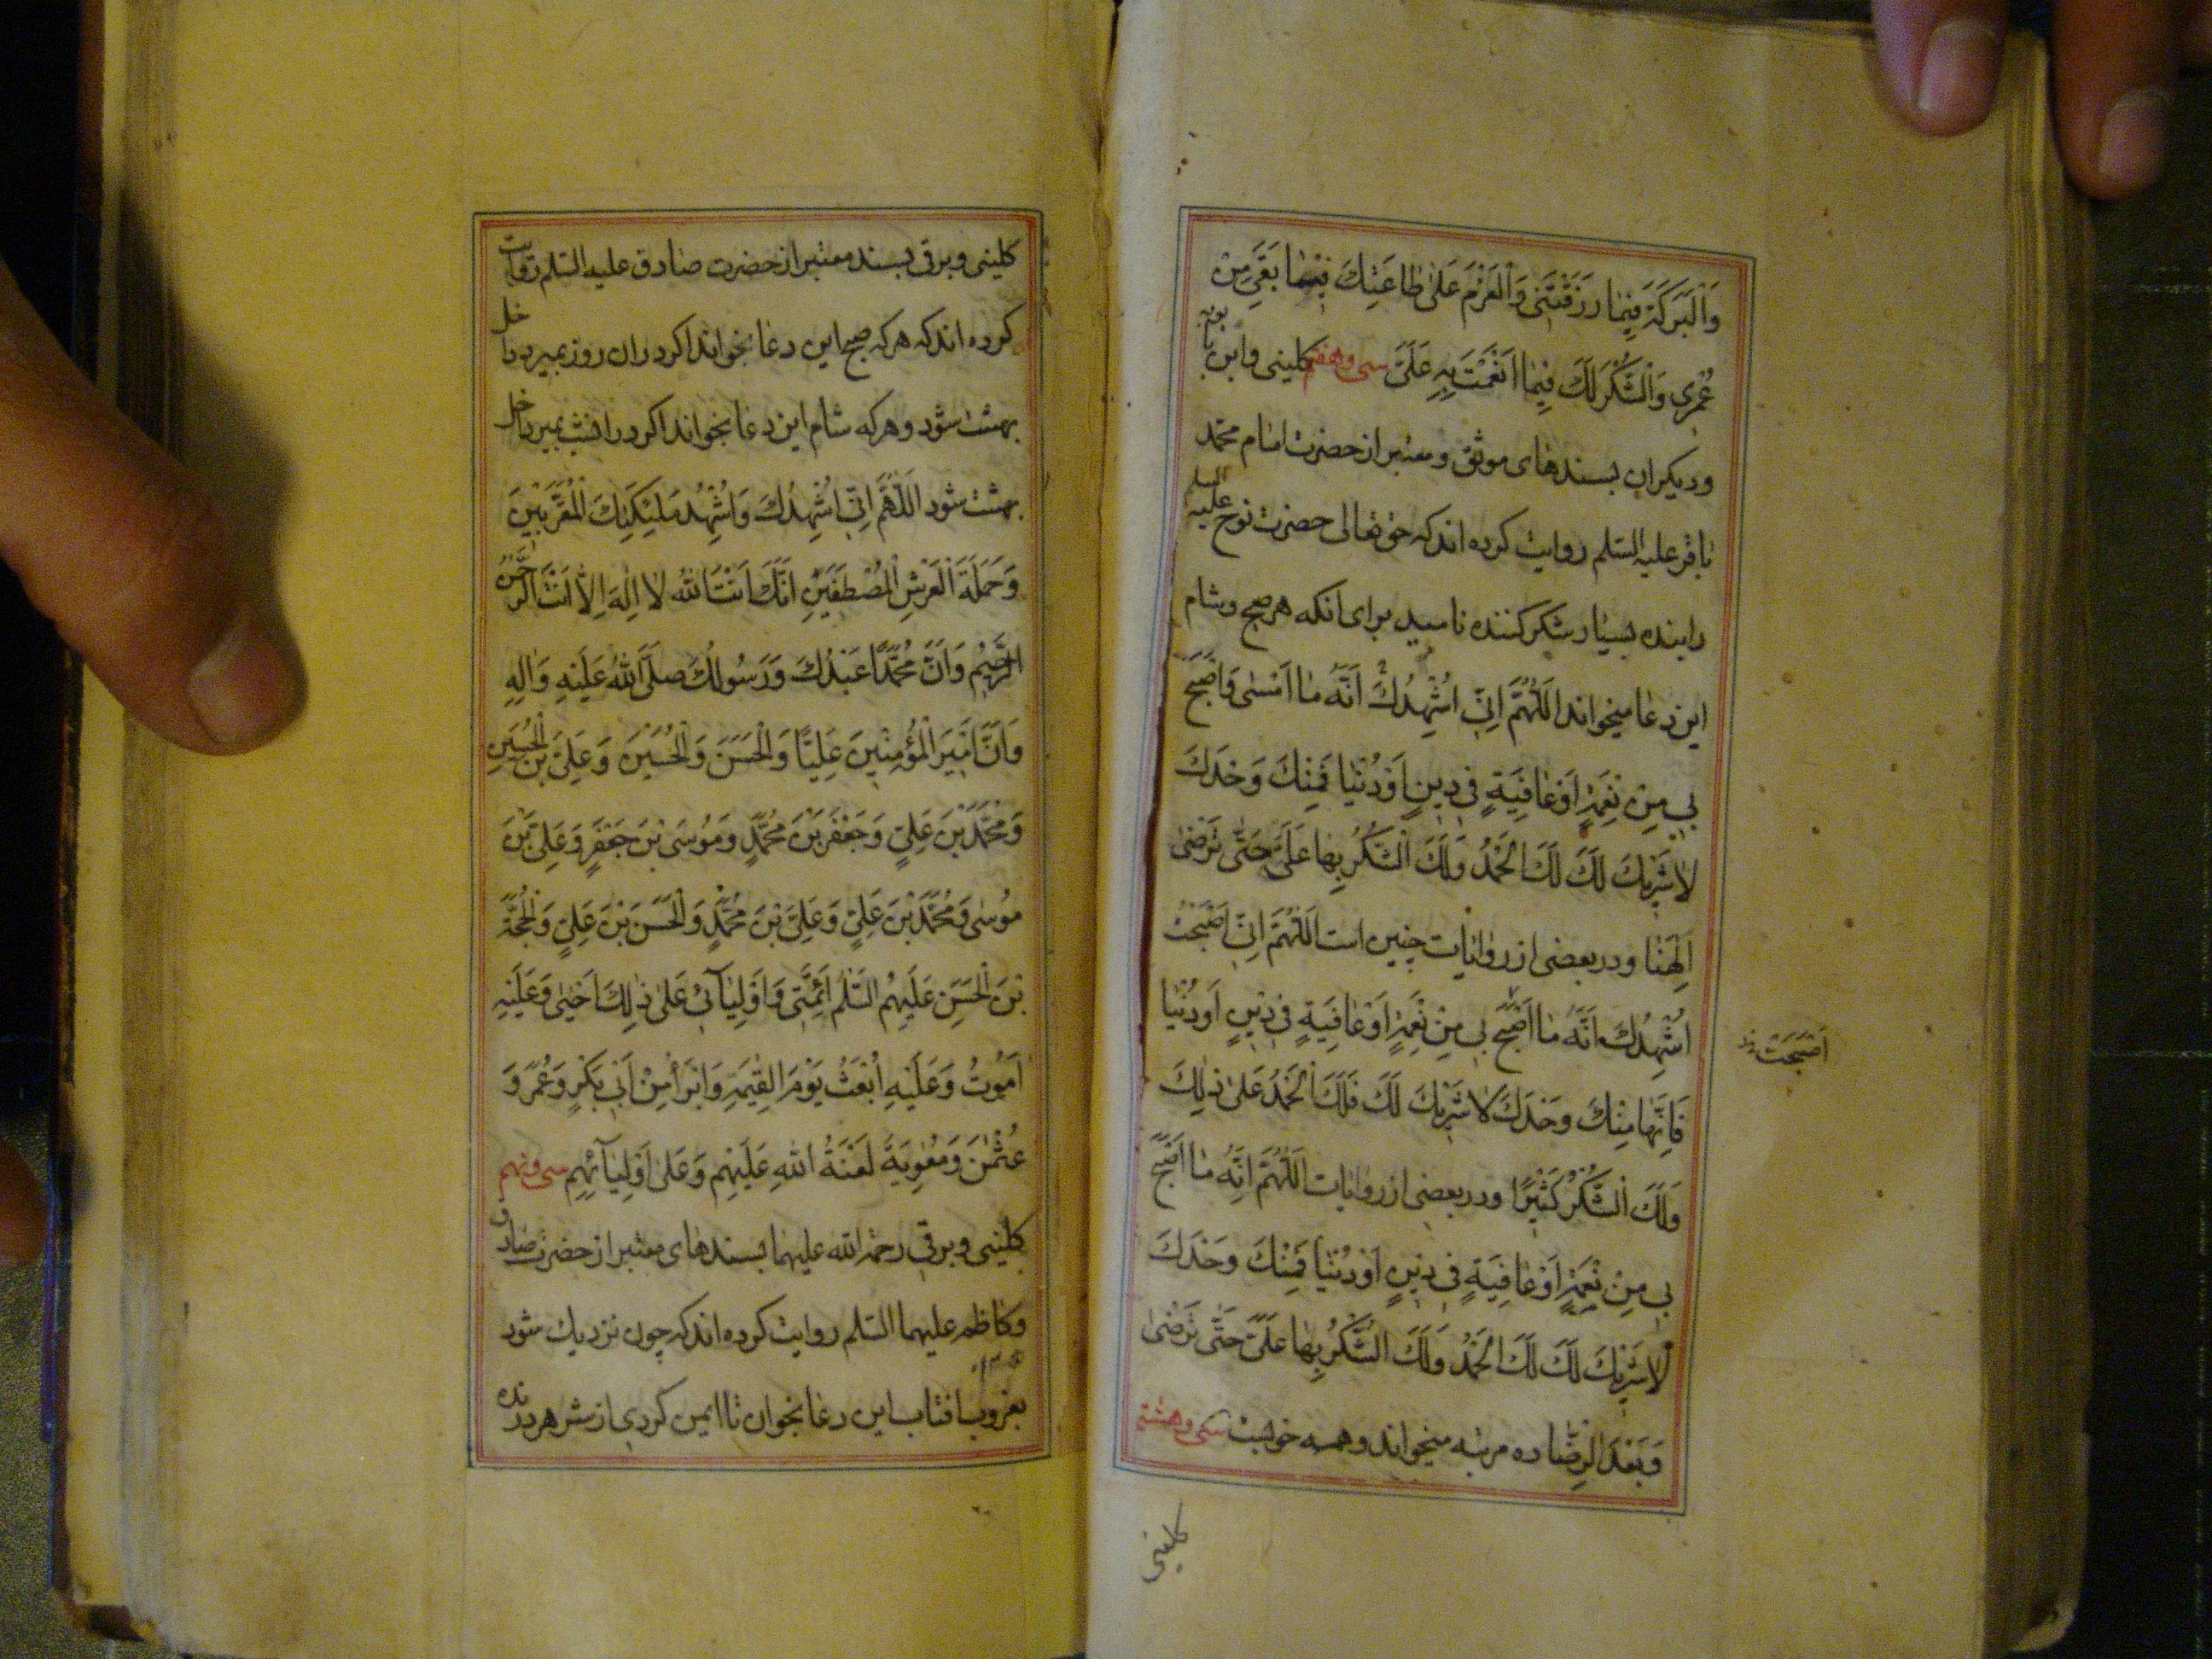 وَالْبَرَكَةَ فِيمَا رَزَقْتَنِي وَالْعَزْمَ عَلٰى طَاعَتِكَ فِيمَا بَقِيَ مِنْ
عُمْرِي وَالشُّكْرَ لَكَ فِيمَا اَنْعَمْتَ بِهِ عَلَيَّ سی وهفتم کلینی وابن بابویه
ودیکران بسندهای موثق ومعتبر از حضرت امام محمد
باقر علیه السلم روایت کرده اند که حق تعالی حضرت نوح علیه السلم
را بنده بسیار شکر کننده نامید برای انکه هر صبح وشام
این دعا میخواند اَللّٰهُمَّ اِنِّي اُشْهِدُكَ اَنَّهُ مَا اَمْسٰى وَاَصْبَحَ
بِي مِنْ نِعْمَةٍ اَوْ عَافِيَةٍ فِي دِينٍ اَوْ دُنْيَا فَمِنْكَ وَحْدَكَ
لَا شَرِيكَ لَكَ لَكَ الْحَمْدُ وَلَكَ الشُّكْرُ بِهَا عَلَيَّ حَتّٰى تَرْضٰى
اِلٰهَنَا ودر بعضی از روایات چنین است اَللّٰهُمَّ اِنِّي اَصْبَحْتُ
اُشْهِدُكَ اَنَّهُ مَا اَصْبَحَ بِي مِنْ نِعْمَةٍ اَوْ عَافِيَةٍ فِي دِينٍ اَوْ دُنْيَا
اَصْبَحَتْ
فَاِنَّهَا مِنْكَ وَحْدَكَ لَا شَرِيكَ لَكَ فَلَكَ الْحَمْدُ عَلٰى ذٰلِكَ
وَلَكَ الشُّكْرُ كَثِيرًا ودر بعضی از روایات اَللّٰهُمَّ اِنَّهُ مَا اَصْبَحَ
بِي مِنْ نِعْمَةٍ اَوْ عَافِيَةٍ فِي دِينٍ اَوْ دُنْيَا فَمِنْكَ وَحْدَكَ
لَا شَرِيكَ لَكَ لَكَ الْحَمْدُ وَلَكَ الشُّكْرُ بِهَا عَلَيَّ حَتّٰى تَرْضٰى
وَبَعْدَ الرِّضَا ده مرتبه میخواند وهمه خوبست سی وهشتم
کلینی
کلینی وبرقی بسند معتبر از حضرت صادق علیه السلم روایت
کرده اند که هر که صبح این دعا بخواند اکر در ان روز بمیرد داخل
بهشت شود وهر که شام این دعا بخواند اکر در انشب بمیرد داخل
بهشت شود اَللّٰهُمَّ اِنِّي اُشْهِدُكَ وَاُشْهِدُ مَلٰئِكَتَكَ الْمُقَرَّبِينَ
وَحَمَلَةَ الْعَرْشِ الْمُصْطَفَيْنَ اَنَّكَ اَنْتَ اللّٰهُ لَا اِلٰهَ اِلَّا اَنْتَ الرَّحْمٰنُ
الرَّحِيمُ وَاَنَّ مُحَمَّدًا عَبْدُكَ وَرَسُولُكَ صَلَّى اللّٰهُ عَلَيْهِ وَاٰلِهِ
وَاَنَّ اَمِيرَ الْمُؤْمِنِينَ عَلِيًّا وَالْحَسَنَ وَالْحُسَيْنَ وَعَلِيَّ بْنَ الْحُسَيْنِ
وَمُحَمَّدَ بْنَ عَلِيٍّ وَجَعْفَرَ بْنَ مُحَمَّدٍ وَمُوسَى بْنَ جَعْفَرٍ وَعَلِيَّ بْنَ
مُوسٰى وَمُحَمَّدَ بْنَ عَلِيٍّ وَعَلِيَّ بْنَ مُحَمَّدٍ وَالْحَسَنَ بْنَ عَلِيٍّ وَالْحُجَّةَ
بْنَ الْحَسَنِ عَلَيْهِمُ السَّلٰمُ اَئِمَّتِي وَاَوْلِيَآئِي عَلٰى ذٰلِكَ اَحْيٰى وَعَلَيْهِ
اَمُوتُ وَعَلَيْهِ اُبْعَثُ يَوْمَ الْقِيٰمَةِ وَاَبْرَأُ مِنْ اَبِي بَكْرٍ وَعُمَرَ وَ
عُثْمٰنَ وَمُعٰوِيَةَ لَعْنَةُ اللّٰهِ عَلَيْهِمْ وَعَلٰى اَوْلِيَآئِهِمْ سی ونهم
کلینی وبرقی رحمة الله علیهما بسندهای معتبر از حضرت صادق
وکاظم علیهما السلم روایت کرده اند که چون نزدیك شود
بغروب افتاب این دعا بخوان تا ایمن کردی از شر هر درنده